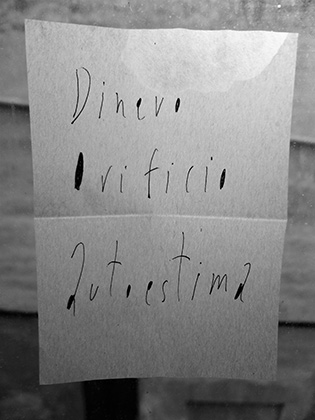 Dinero
Orificio
Autoestima